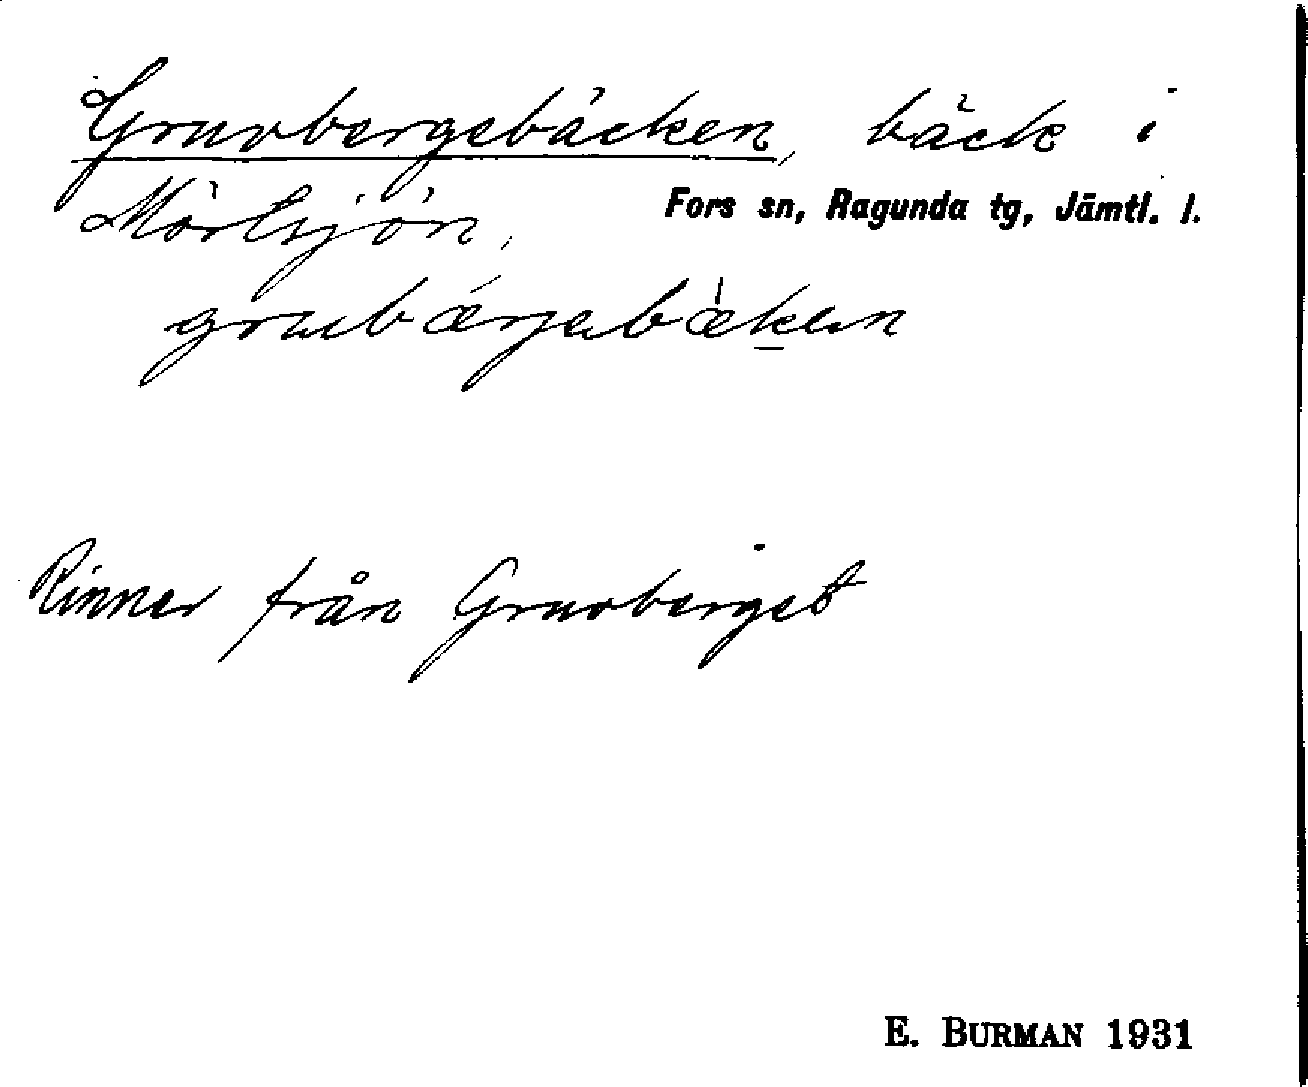 Gruvbergsbäcken, bäck i
Mörtsjön, Fors sn, Ragunda tg, Jämtl. l.
Rinner från Gruvberget
E. BURMAN 1931